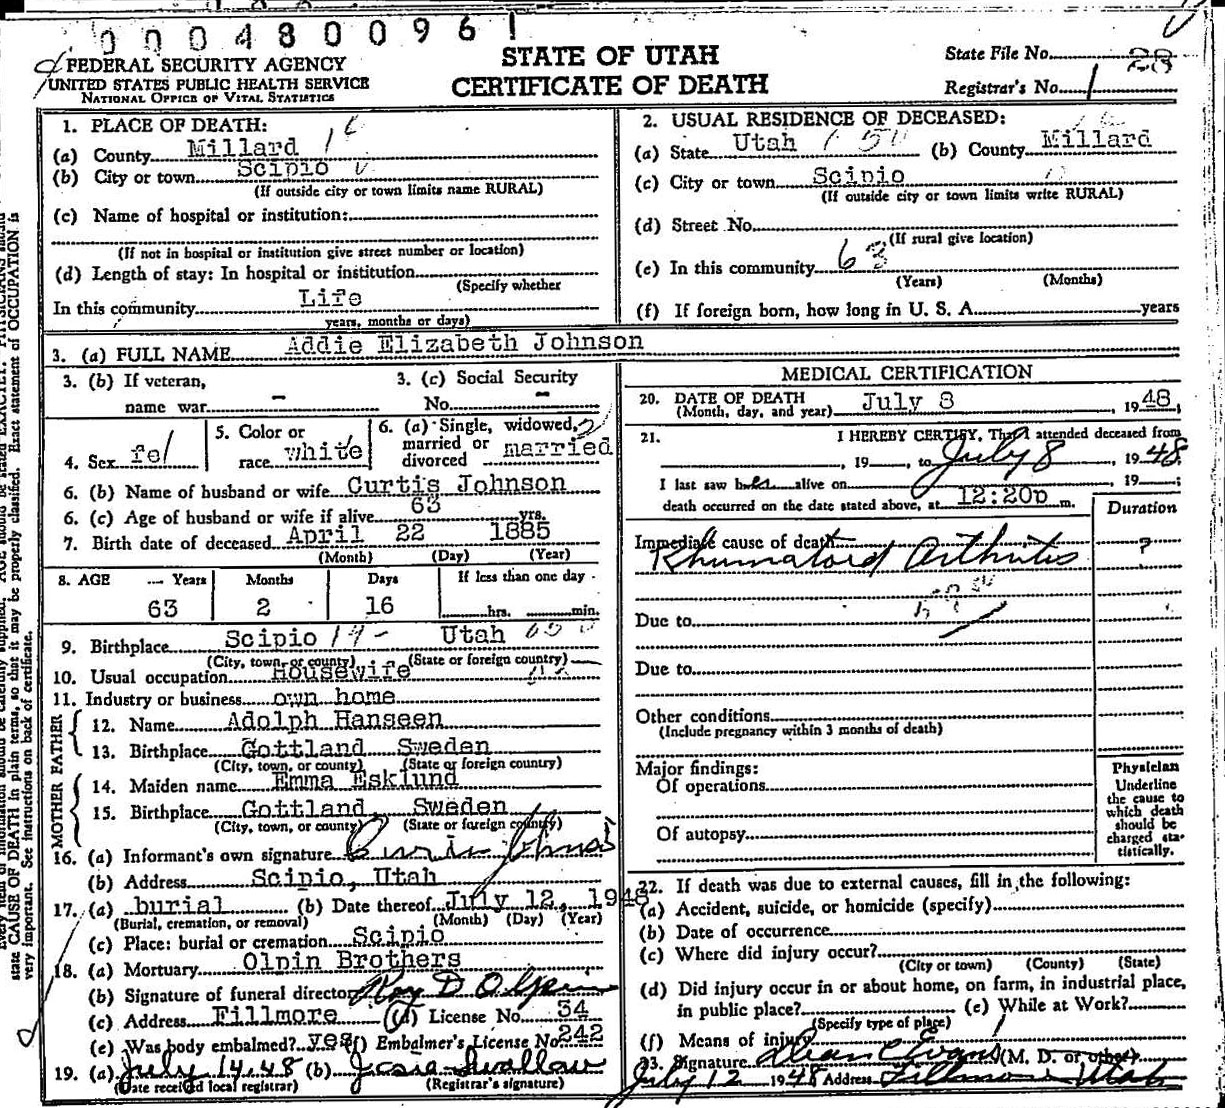 000480096 1
FEDERAL SECURITY AGENCY
UNITED STATES PUBLIC HEALTH SERVICE
NATIONAL OFFICE OF VITAL STATISTICS
STATE OF UTAH
CERTIFICATE OF DEATH
State File No. 28
Registrar's No. 1
1. PLACE OF DEATH: 
(a) County Millard
(b) City or town Scipio
(If outside city or town limits name RURAL)
(c) Name of hospital or institution:
(If not in hospital or institution give street number or location)
(d) Length of stay: In hospital or institution
(Specify whether
In this community Life
years, months or days)
2. USUAL RESIDENCE OF DECEASED:
(a) State Utah (b) County Millard
(c) City or town Scipio
(If outside city or town limits write RURAL)
(d) Street No.
(If rural give location)
(e) In this community 63
(Years) (Months)
(f) If foreign born, how long in U. S. A. years
3. (a) FULL NAME Addie Elizabeth Johnson
3. (b) If veteran, 3. (c) Social Security
name war - No. -
4. Sex fel
5. Color or
race white
6. (a) Single, widowed,
married or
divorced married
6. (b) Name of husband or wife Curtis Johnson
6. (c) Age of husband or wife if alive 63 yrs.
7. Birth date of deceased April 22 1885
(Month) (Day) (Year)
8. AGE Years Months Days If less than one day
63 2 16 hrs. min.
9. Birthplace Scipio Utah
(City, town, or county) (State or foreign country)
10. Usual occupation Housewife
11. Industry or business own home
FATHER
12. Name Adolph Hanseen
13. Birthplace Gottland Sweden
(City, town, or county) (State or foreign country)
MOTHER
14. Maiden name Emma Esklund
15. Birthplace Gottland Sweden
(City, town, or county) (State or foreign country)
16. (a) Informant's own signature
(b) Address Scipio, Utah
17. (a) burial (b) Date thereof July 12, 1948
(Burial, cremation, or removal) (Month) (Day) (Year)
(c) Place: burial or cremation Scipio
18. (a) Mortuary Olpin Brothers
(b) Signature of funeral director Roy D Olpin
(c) Address Fillmore (d) License No. 34
(e) Was body embalmed? yes (f) Embalmer's License No 242
19. (a) July 14.48 (b) Josie Swallow
(Date received local registrar) (Registrar's signature)
MEDICAL CERTIFICATION
20. DATE OF DEATH
(Month, day, and year) July 8, 1948;
21. I HEREBY CERTIFY, That I attended deceased from
, 19 , to July 8, 1948;
I last saw her alive on , 19 ;
death occurred on the date stated above, at 12:20p m.
Duration
Immediate cause of death
Rhumatoid Arthritis ?
Due to
Due to
Other conditions
(Include pregnancy within 3 months of death)
Major findings:
Of operations
Of autopsy
Physician
Underline
the cause to
which death
should be
charged sta-
tistically.
22. If death was due to external causes, fill in the following:
(a) Accident, suicide, or homicide (specify)
(b) Date of occurrence
(c) Where did injury occur?
(City or town) (County) (State)
(d) Did injury occur in or about home, on farm, in industrial place,
in public place? (e) While at Work?
(Specify type of place)
(f) Means of injury
23. Signature Dean C Evans (M. D. or other)
July 12 1948 Address Fillmore Utah
state CAUSE OF DEATH in plain terms, so that it may be properly classified. Exact statement of OCCUPATION is
very important. See instructions on back of certificate.